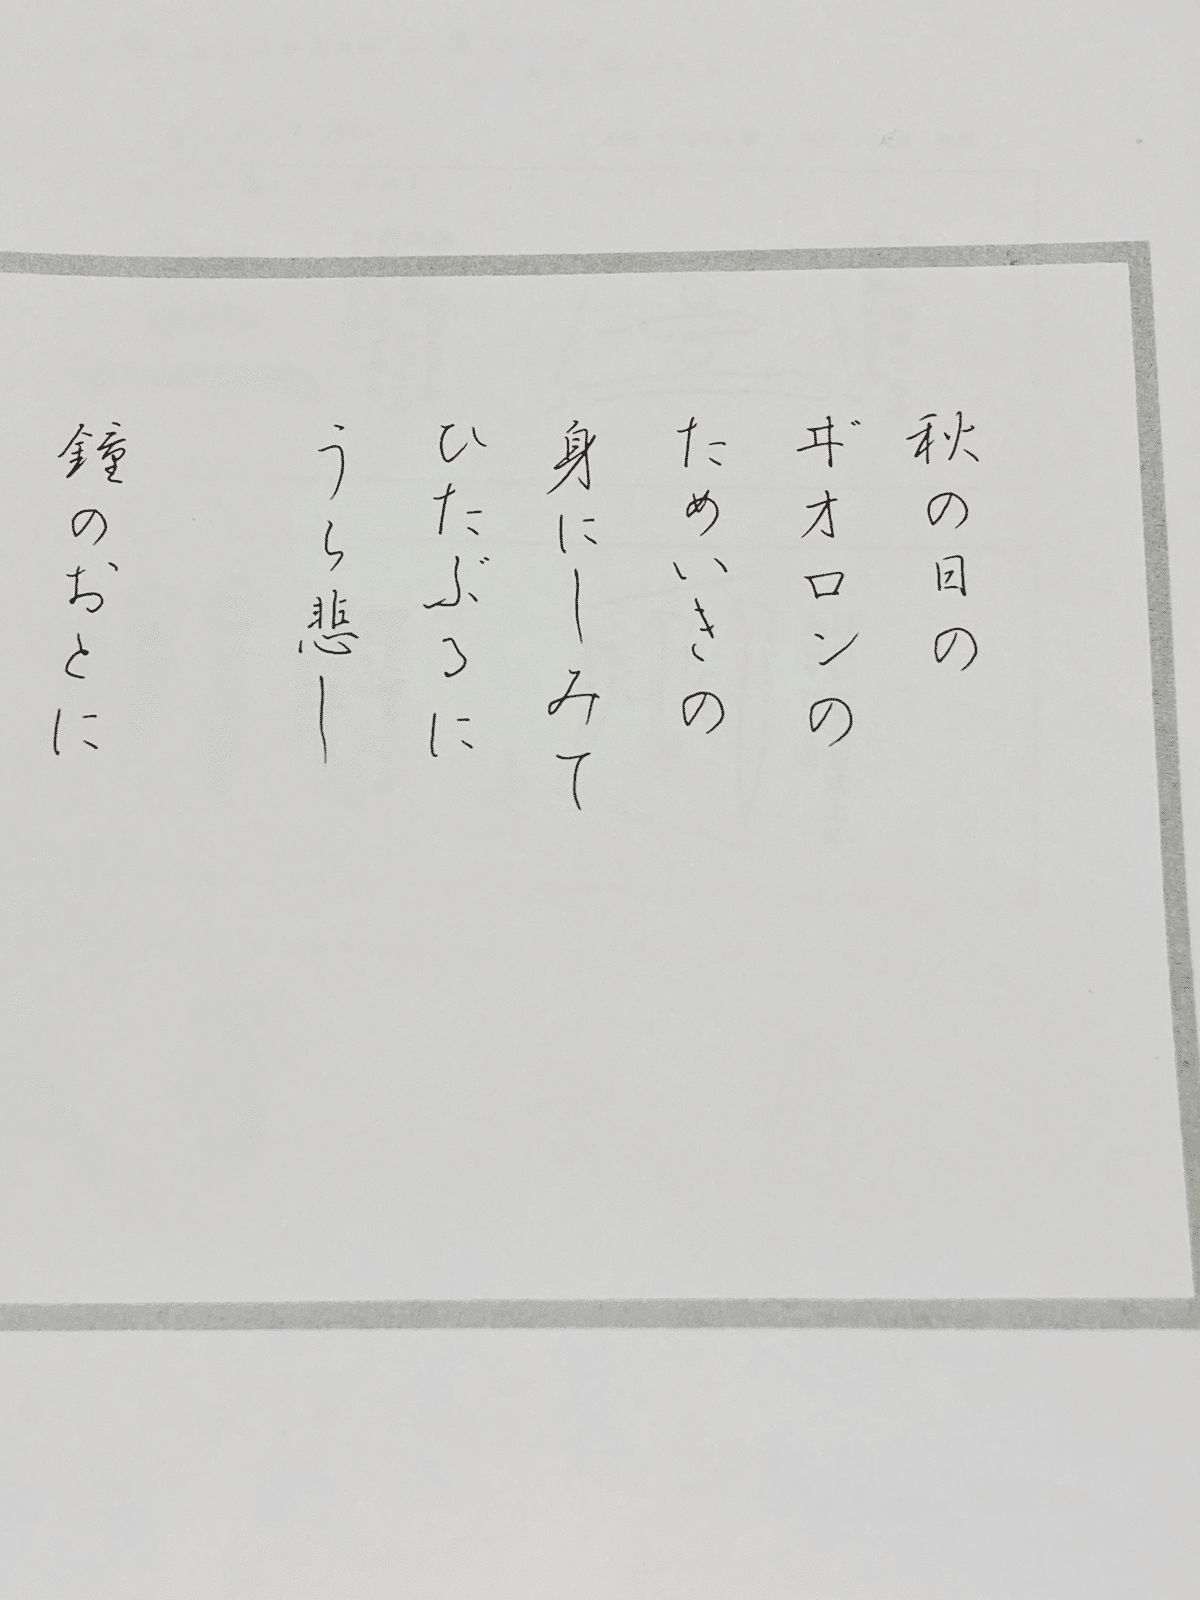 秋の日の
ヸオロンの
ためいきの
身にしみて
ひたぶるに
うら悲し
鐘のおとに